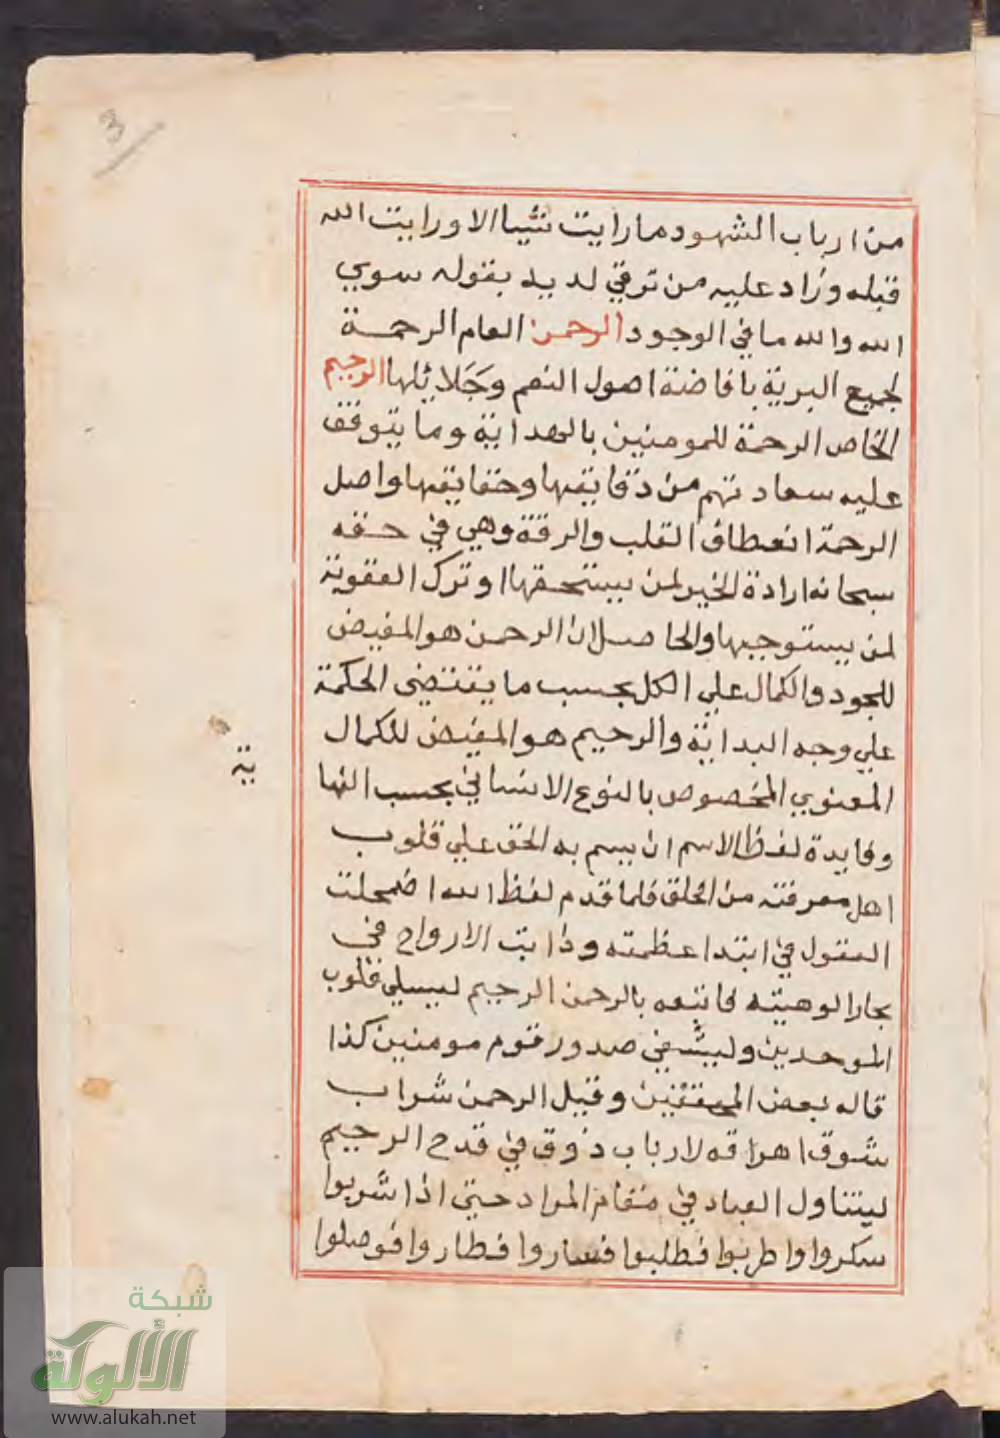 3
من ارباب الشهود ما رايت شيا الا ورايت الله
قبله وزاد عليه من ترقي لديه بقوله سوي
الله والله ما في الوجود الرحمن العام الرحمة
لجميع البرية بافاضة اصول النعم وجلايلها الرحيم
الخاص الرحمة للمومنين بالهداية وما يتوقف
عليه سعادتهم من دقايقها وحقايقها واصل
الرحمة انعطاف القلب والرقة وهي في حقه
سبحانه ارادة الخير لمن يستحقها او ترك العقوبة
لمن يستوجبها والحاصل ان الرحمن هو المفيض
للجود والكمال علي الكل بحسب ما يقتضي الحكمة
علي وجه البداية والرحيم هو المفيض للكمال
المعنوي المخصوص بالنوع الانساني بحسب النها
ية
وفايدة لفظ الاسم ان يسم به الحق علي قلوب
اهل معرفته من الخلق فلما قدم لفظ الله اضمحلت
العقول في ابتدا عظمته وذابت الارواح في
بحار الوهيته فاتبعه بالرحمن الرحيم ليسلي قلوب
الموحدين وليشفي صدور قوم مومنين كذا
قاله بعض المحققين وقيل الرحمن شراب
شوق اهراقه لارباب ذوق في قدح الرحيم
ليتناول العباد في مقام المراد حتي اذا شربوا
سكروا واطربوا فطلبوا فساروا فطاروا فوصلوا
شبكة
الألوكة
www.alukah.net